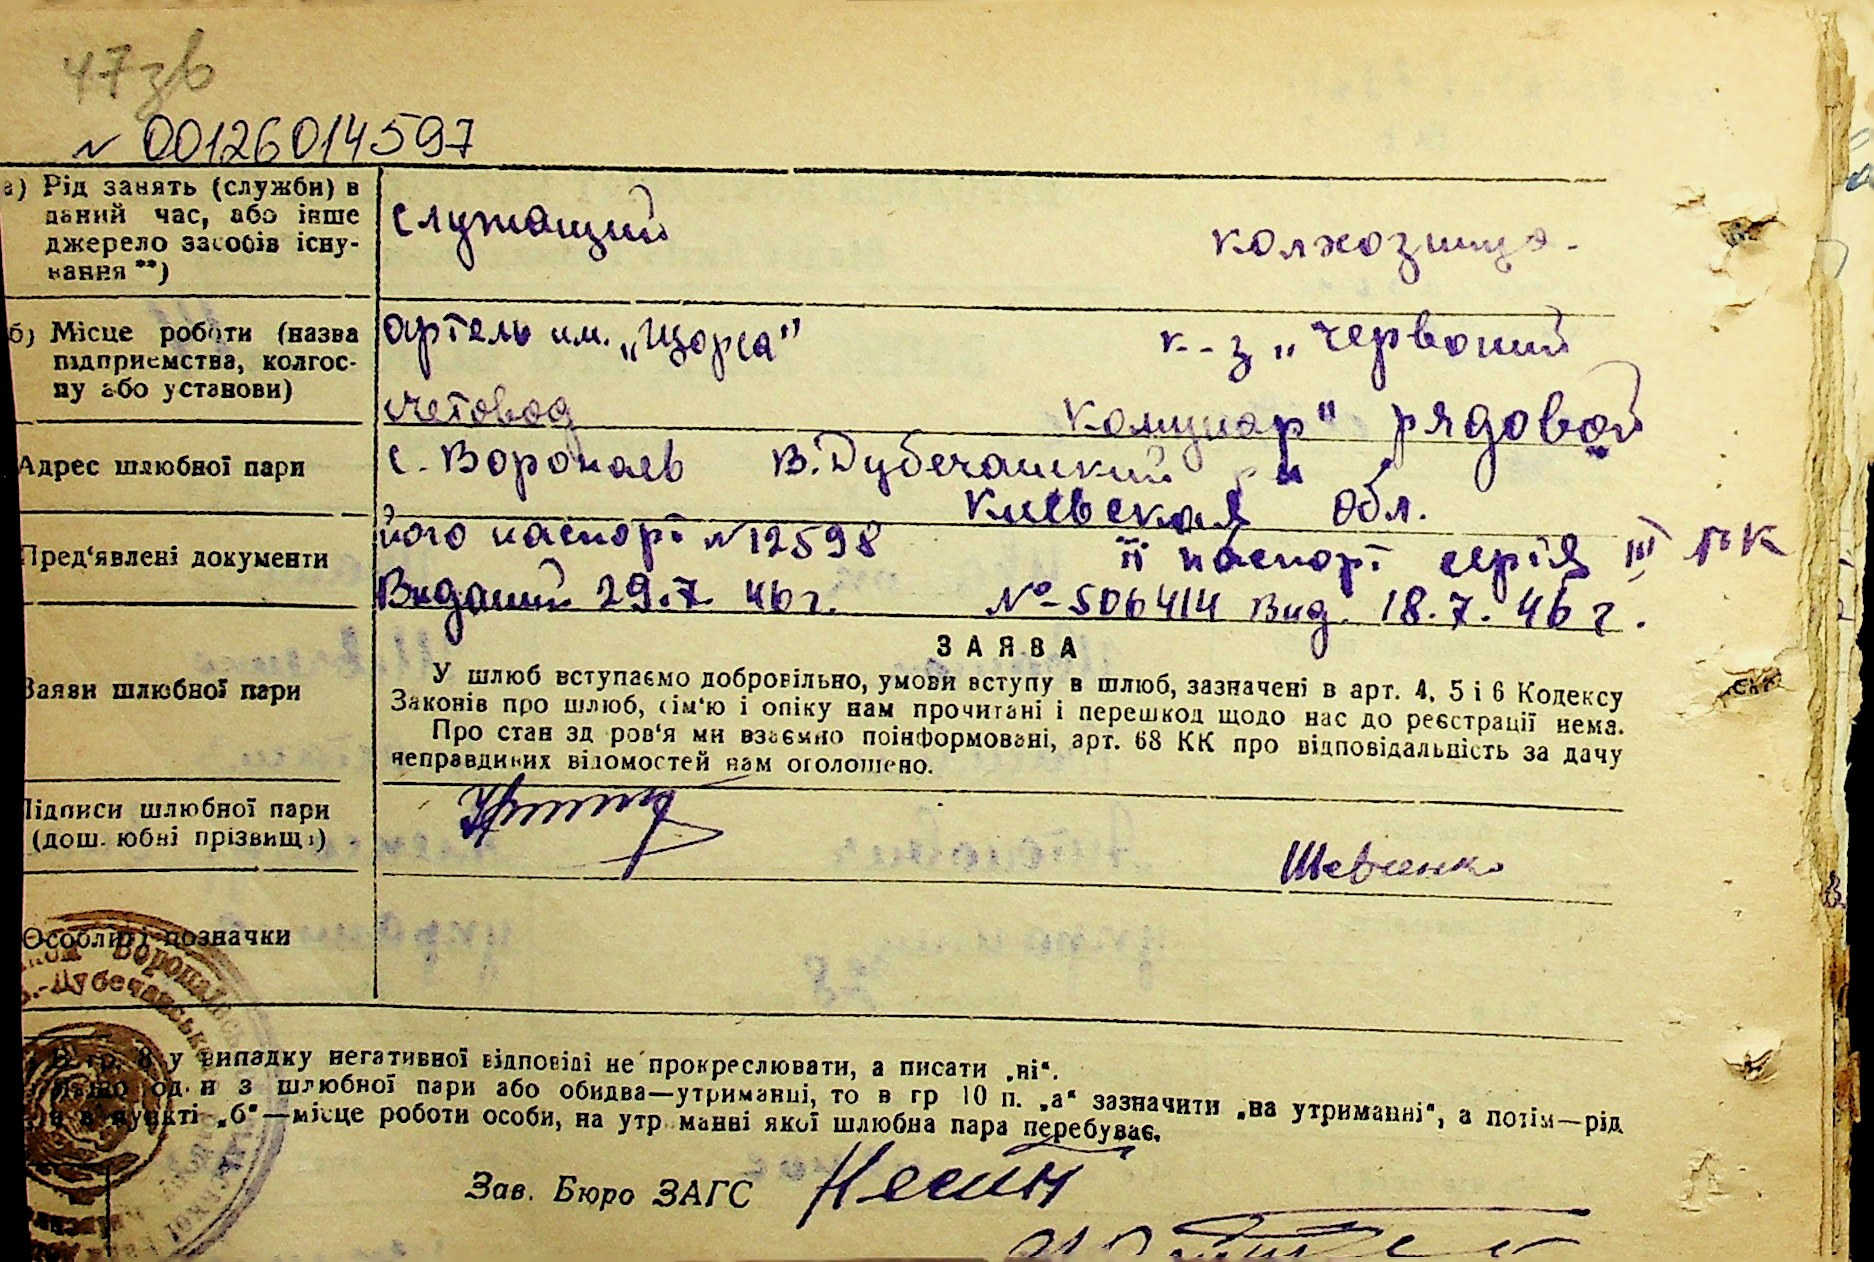 47зв
N 00126014597
а) Рід занять (служби) в
даний час, або інше
джерело засобів існу-
вання **)
служащий
колхозница.
б) Місце роботи (назва
підприємства, колгос-
пу або установи)
артель им. „Щорса"
счетовод
к-з „Червоний
Комунар" рядовой
Адрес шлюбної пари
с. Воропаев В.Дубечанский р-н
Киевская обл.
Пред'явлені документи
його паспорт N 12598
Виданий 29.7. 46 г.
її паспорт серія III ПК
№-506414 Вид. 18.7. 46 г.
Заяви шлюбної пари
ЗАЯВА
У шлюб вступаємо добровільно, умови вступу в шлюб, зазначені в арт. 4, 5 і 6 Кодексу
Законів про шлюб, сім'ю і опіку нам прочитані і перешкод щодо нас до реєстрації нема.
Про стан здоров'я ми взаємно поінформовані, арт. 68 КК про відповідальність за дачу
неправдивих відомостей нам оголошено.
Підписи шлюбної пари
(дошлюбні прізвищі)
Шевченко
Особливі позначки
Воропаївс
Дубечансько
В гр. 8 у випадку негативної відповіді не прокреслювати, а писати „ні".
один з шлюбної пари або обидва—утриманні, то в гр 10 п. „а" зазначити „на утриманні", а потім—рід
в пункті „б"—місце роботи особи, на утриманні якої шлюбна пара перебуває.
Зав. Бюро ЗАГС